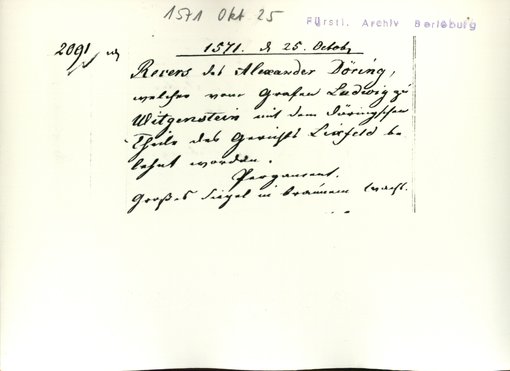 1571 Okt 25
Fürstl. Archiv Berleburg
2091
1571. d 25. Octobr
Revers des Alexander Döring,
welcher vom Grafen Ludwig zu
Witgenstein mit dem döringschen
Theile des Gerichts Lixfeld be
lehnt worden.
Pergament.
Großes Siegel in braunem Wachs.